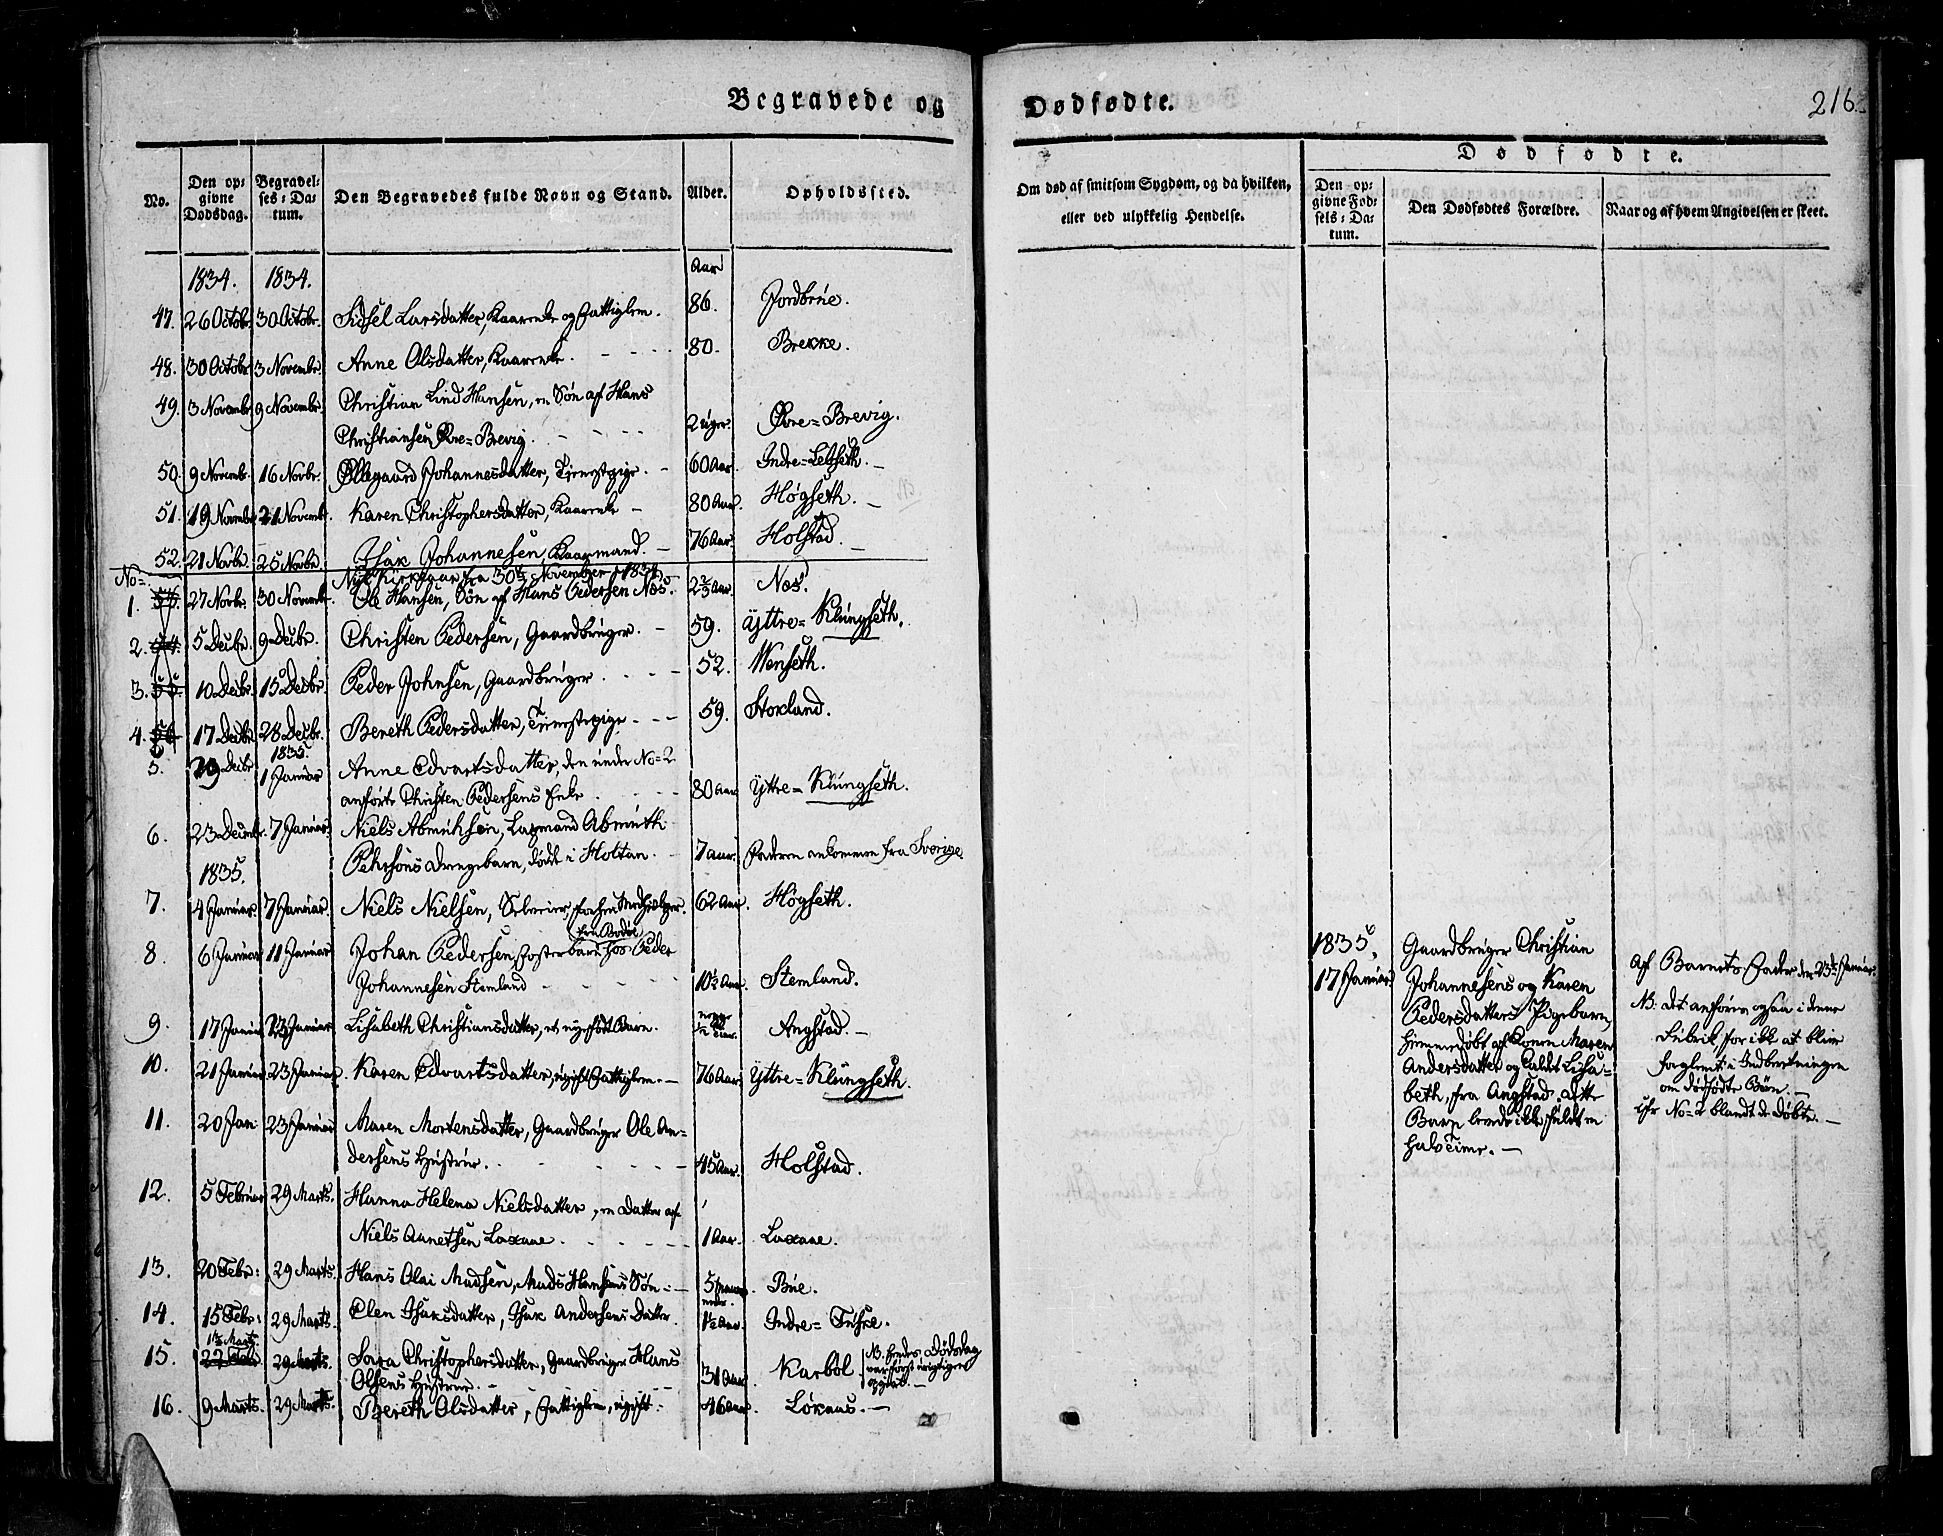 Begravede og Dødfødte.
216.
No.
Den opgivne Dødsdag.
Begravelses-Datum.
Den Begravedes fulde Navn og Stand.
Alder.
Opholdssted.
Om død af smitsom Sygdom, og da hvilken,
eller ved ulykkelig Hendelse.
Dødfødte.
Den opgivne Fødsels-Datum.
Den Dødfødtes Forældre.
Naar og af hvem Angivelsen er skeet.
1834. 1834. Aar
47. 26 Octobr. 30 Octobr. Sidsel Larsdatter, Kaarenke og Fattiglem. 86. Jordbrüe.
48. 30 Octobr 3 Novembr. Anne Olsdatter, Kaarenke. 80. Brekke.
49. 3 Novembr 9 Novembr. Christian Lind Hansen, en Søn af Hans
Christiansen Øvre=Brevig. 2 Uger. Øvre=Brevig.
50. 9 Novemb. 16 Novbr. Øllegaard Johannesdatter, Tienestepige. 60 Aar. Indre=Leth.
51. 19 Novembr 21 Novembr. Karen Christophersdatter, Kaarenke 80 Aar. Høgseth.
52. 21 Novbr. 25 Novbr. Isak Johannesen, Kaarmand. 76 Aar. Holstad.
No= Nye Kirkegaar fra 30te November 1834.
1. 27 Novbr. 30 Novembr. Ole Hansen, Søn af Hans Pedersen Næs. 2 2/3 Aar. Næs.
2. 54. 5 Decbr. 9 Decbr. Christen Pedersen, Gaardbrüger. 59. Yttre=Klüngseth.
3. 55. 10 Decbr. 15 Decbr. Peder Johnsen, Gaardbrüger. 52. Wenseth.
4. 56 17 Decbr 28 Decbr. Bereth Pedersdatter, Tienestepige. 59. Storland.
1835.
5. 19 Decbr. 1 Januar Anne Edvartsdatter, den under No=2
anførte Christen Pedersens Enke 80 Aar Yttre=Klüngseth.
6. 23 Decembr. 7 Januar. Niels Abmuthsen, Lapmand Abmuth
Pehrsøns Drengebarn, dødt i Holtan. 7 Aar. Faderen ankommen fra Sverige.
1835.
7. 4 Januar. 7 Januar. Niels Nielsen, Seleeier, forhen Medhielper. 62 Aar. Høgseth.
fra Bodøe
8. 6 Januar 11 Januar Johan Pedersen, Fosterbarn hos Peder
Johannesen Stemland 10½ Aar. Stemland.
9. 17 Januar 23 Januar Lisabeth Christiansdatter, et nyefødt Barn. ½ Time. Angstad.
10. 21 Januar 23 Januar. Karen Edvartsdatter, ugift Fattiglem. 76 Aar. Yttre=Klüngseth.
11. 20 Jan 23 Januar Maren Mortensdatter, Gaardbrüger Ole Andersens Hüstrüe. 45 Aar. Holstad.
12. 5 Februar 29 Marts. Hanna Helena Nielsdatter, en Datter af
Niels Annetsen Laxaae. 1 Aar. Laxaae.
13. 20 Febr: 29 Marts. Hans Olai Madsen, Mads Hansens Søn. 5 Maaneder. Büe.
14. 15 Febr: 29 Marts. Elen Isaksdatter, Isak Andersens Datter. 1½ Aar. Indre=Füske.
15. 22 Febr 29 Marts. Sara Christophersdatter, Gaardbrüger Hans
Olsens Hüstrüe. 31 Aar. Karbøl. NB. hendes Dødsdag var først urigtigen opgivet.
16. 9 Marts. 29 Marts. Bereth Olsdatter, Fattiglem, ugift. 46 Aar. Løkaas.
1835,
17 Januar
Gaardbrüger Christian
Johannesens og Karen
Pedersdatters Pigebarn,
hiemmedøbt af Konen Maren
Andersdatter og kaldet Lisabeth, fra Angstad. dette
Barn levede ikke fuldt en
halv Time.
Af Barnets Fader den 23de Januar.
NB. Det anføres ogsaa i denne
Rubrik, for ikke at blive
forglemt i Indberetningen
om dødfødte Børn.
cfr No=2 blandt de Døbte.